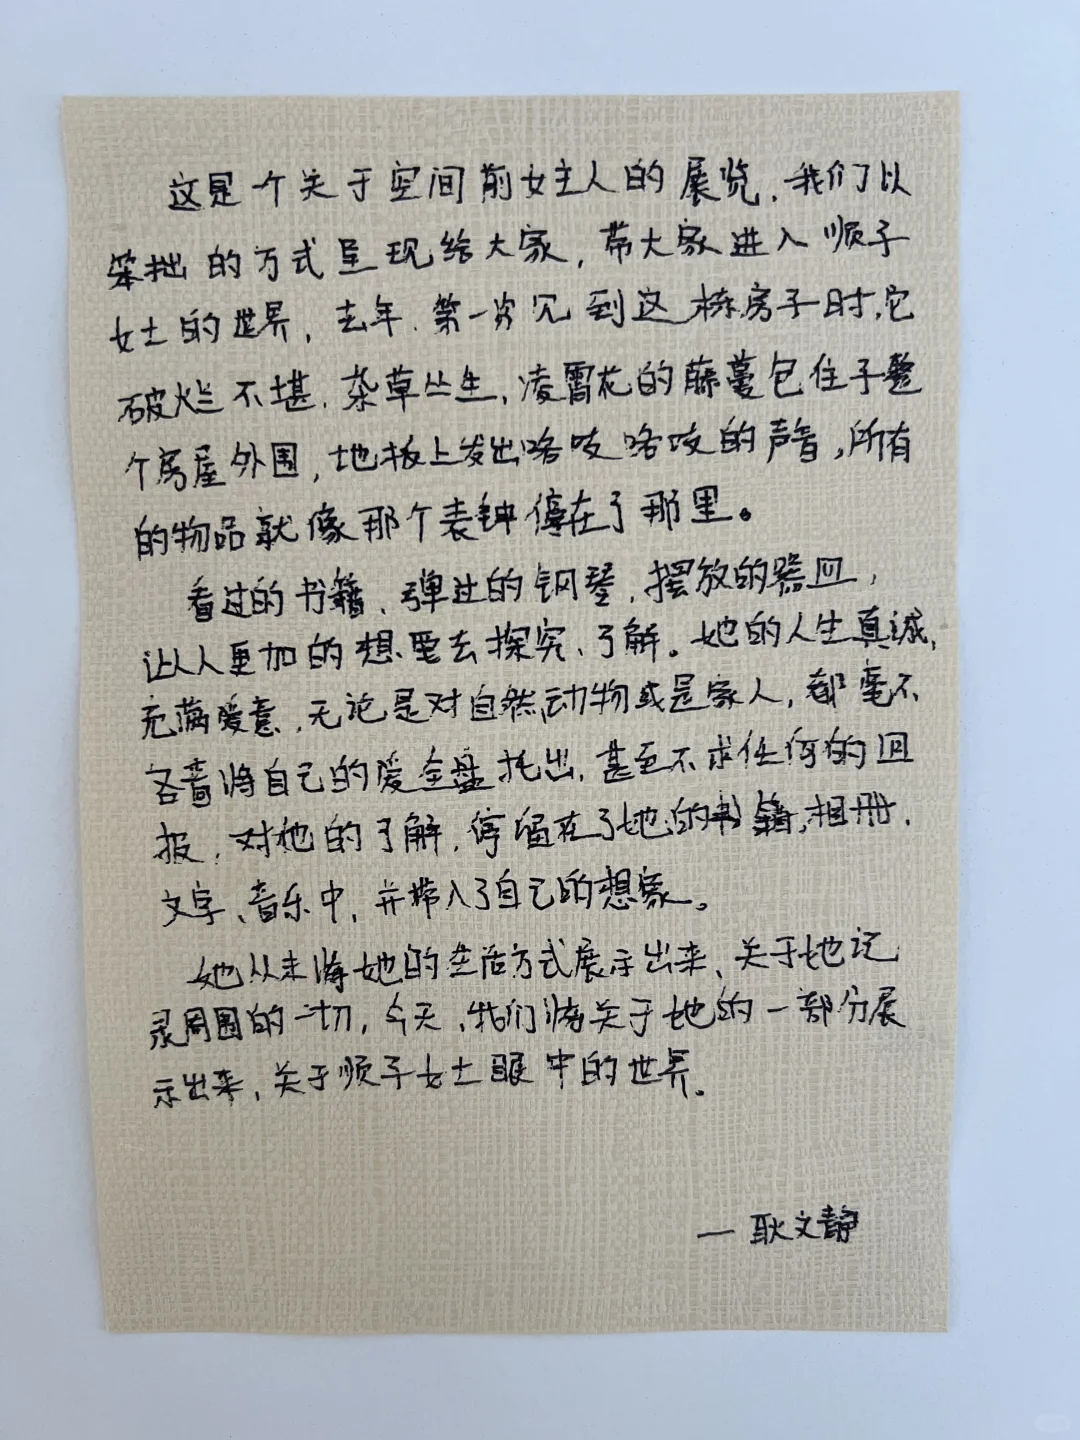 这是个关于空间前女主人的展览，我们以
笨拙的方式呈现给大家，带大家进入顺子
女士的世界，去年，第一次见到这栋房子时，它
破烂不堪，杂草丛生，凌霄花的藤蔓包住了整
个房屋外围，地板上发出咯吱咯吱的声音，所有
的物品就像那个表钟停在了那里。
看过的书籍、弹过的钢琴，摆放的器皿，
让人更加的想要去探究、了解。她的人生真诚，
充满爱意，无论是对自然、动物或是家人，都毫不
吝啬将自己的爱全盘托出，甚至不求任何的回
报，对她的了解，停留在了她的书籍，相册，
文字、音乐中，并带入了自己的想象。
她从未将她的生活方式展示出来、关于她记
录周围的一切，今天，我们将关于她的一部分展
示出来，关于顺子女士眼中的世界。
— 耿文静